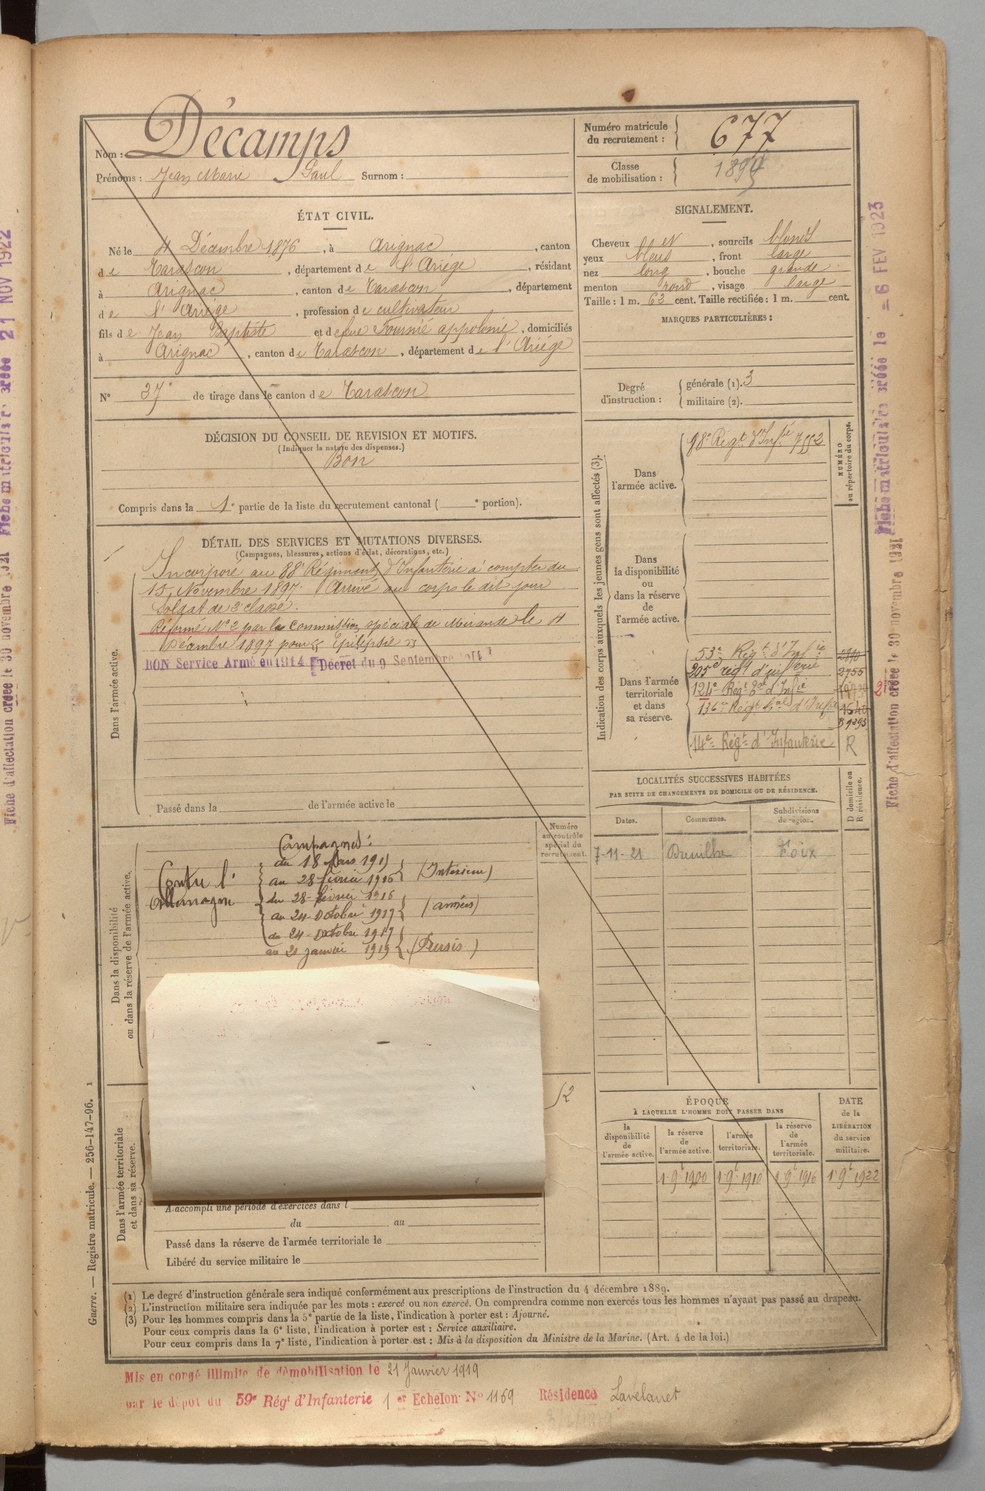 Nom : Décamps
Prénoms : Jean Marie Paul Surnom :
Numéro matricule
du recrutement : 677
Classe
de mobilisation : 189
ÉTAT CIVIL.
Né le 4 Décembre 1876, à Arignac, canton
de Tarascon, département de l'Ariège, résidant
à Arignac, canton de Tarascon, département
de l'Ariège, profession de cultivateur
fils de Jean Baptiste et de domiciliés
à Arignac, canton de Tarascon, département de l'Ariège
N° 37 de tirage dans le canton de Tarascon
SIGNALEMENT.
Cheveux et, sourcils blonds
yeux bleus, front large
nez long, bouche grande
menton rond, visage large
Taille : 1 m. 63 cent. Taille rectifiée : 1 m. cent.
MARQUES PARTICULIÈRES :
Degré
d'instruction :
générale (1). 3
militaire (2).
DÉCISION DU CONSEIL DE REVISION ET MOTIFS.
(Indiquer la nature des dispenses.)
Bon
Compris dans la 1e partie de la liste du recrutement cantonal ( e portion).
DÉTAIL DES SERVICES ET MUTATIONS DIVERSES.
(Campagnes, blessures, actions d'éclat, décorations, etc.)
Dans l'armée active.
Incorporé au 88e Régiment d'Infanterie à compter du
15 Novembre 1897. Arrivé au corps le dit jour
Soldat de 2e classe.
Réformé N° 2 par la Commission spéciale de Mirande le 11
Décembre 1897 pour « Epilepsie »
BON Service Armé en 1914 Décret du 9 Septembre 1914
Passé dans la de l'armée active le
Indication des corps auxquels les jeunes gens sont affectés (3).
NUMÉRO
au répertoire du corps.
Dans
l'armée active.
88e Régt d'Infie 7552
Dans
la disponibilité
ou
dans la réserve
de
l'armée active.
Dans l'armée
territoriale
et dans
sa réserve.
53e Régt d'Infie
205e regt d'infanterie 2755
14e Régt d'Infanterie R
LOCALITÉS SUCCESSIVES HABITÉES
PAR SUITE DE CHANGEMENTS DE DOMICILE OU DE RÉSIDENCE.
Dates. Communes. Subdivisions
de région. D domicile ou
R résidence.
7-11-21 Dreuilhe Foix
Dans la disponibilité
ou dans la réserve de l'armée active.
Numéro
au contrôle
spécial du
recrutement.
Campagnes :
Contre l'Allemagne
du 18 Mars 1915
au 28 février 1916 (Intérieur)
du 28 février 1916
au 24 Octobre 1917 (armées)
du 24 Octobre 1917
au 21 janvier 1919
Dans l'armée territoriale
et dans sa réserve.
A accompli une période d'exercices dans l
du au
Passé dans la réserve de l'armée territoriale le
Libéré du service militaire le
ÉPOQUE
À LAQUELLE L'HOMME DOIT PASSER DANS
la
disponibilité
de
l'armée active.
la réserve
de
l'armée active.
l'armée
territoriale.
la réserve
de
l'armée
territoriale.
DATE
de la
LIBÉRATION
du service
militaire.
1 9e 1900 1 9e 1910 1 9e 1916 1 9e 1922
(1) Le degré d'instruction générale sera indiqué conformément aux prescriptions de l'instruction du 4 décembre 1889.
(2) L'instruction militaire sera indiquée par les mots : exercé ou non exercé. On comprendra comme non exercés tous les hommes n'ayant pas passé au drapeau.
(3) Pour les hommes compris dans la 5e partie de la liste, l'indication à porter est : Ajourné.
Pour ceux compris dans la 6e liste, l'indication à porter est : Service auxiliaire.
Pour ceux compris dans la 7e liste, l'indication à porter est : Mis à la disposition du Ministre de la Marine. (Art. 4 de la loi.)
Guerre. — Registre matricule. — 256-147-96.
Mis en congé illimité de démobilisation le 21 Janvier 1919
par le dépôt du 59e Régt d'Infanterie 1er Echelon N° 1169 Résidence Lavelanet
Fiche d'affectation créée le 30 novembre 1921
Fiche matriculaire créée 21 NOV 1922
Fiche matriculaire créée le - 6 FEV 1923
Fiche d'affectation créée le 30 novembre 1921